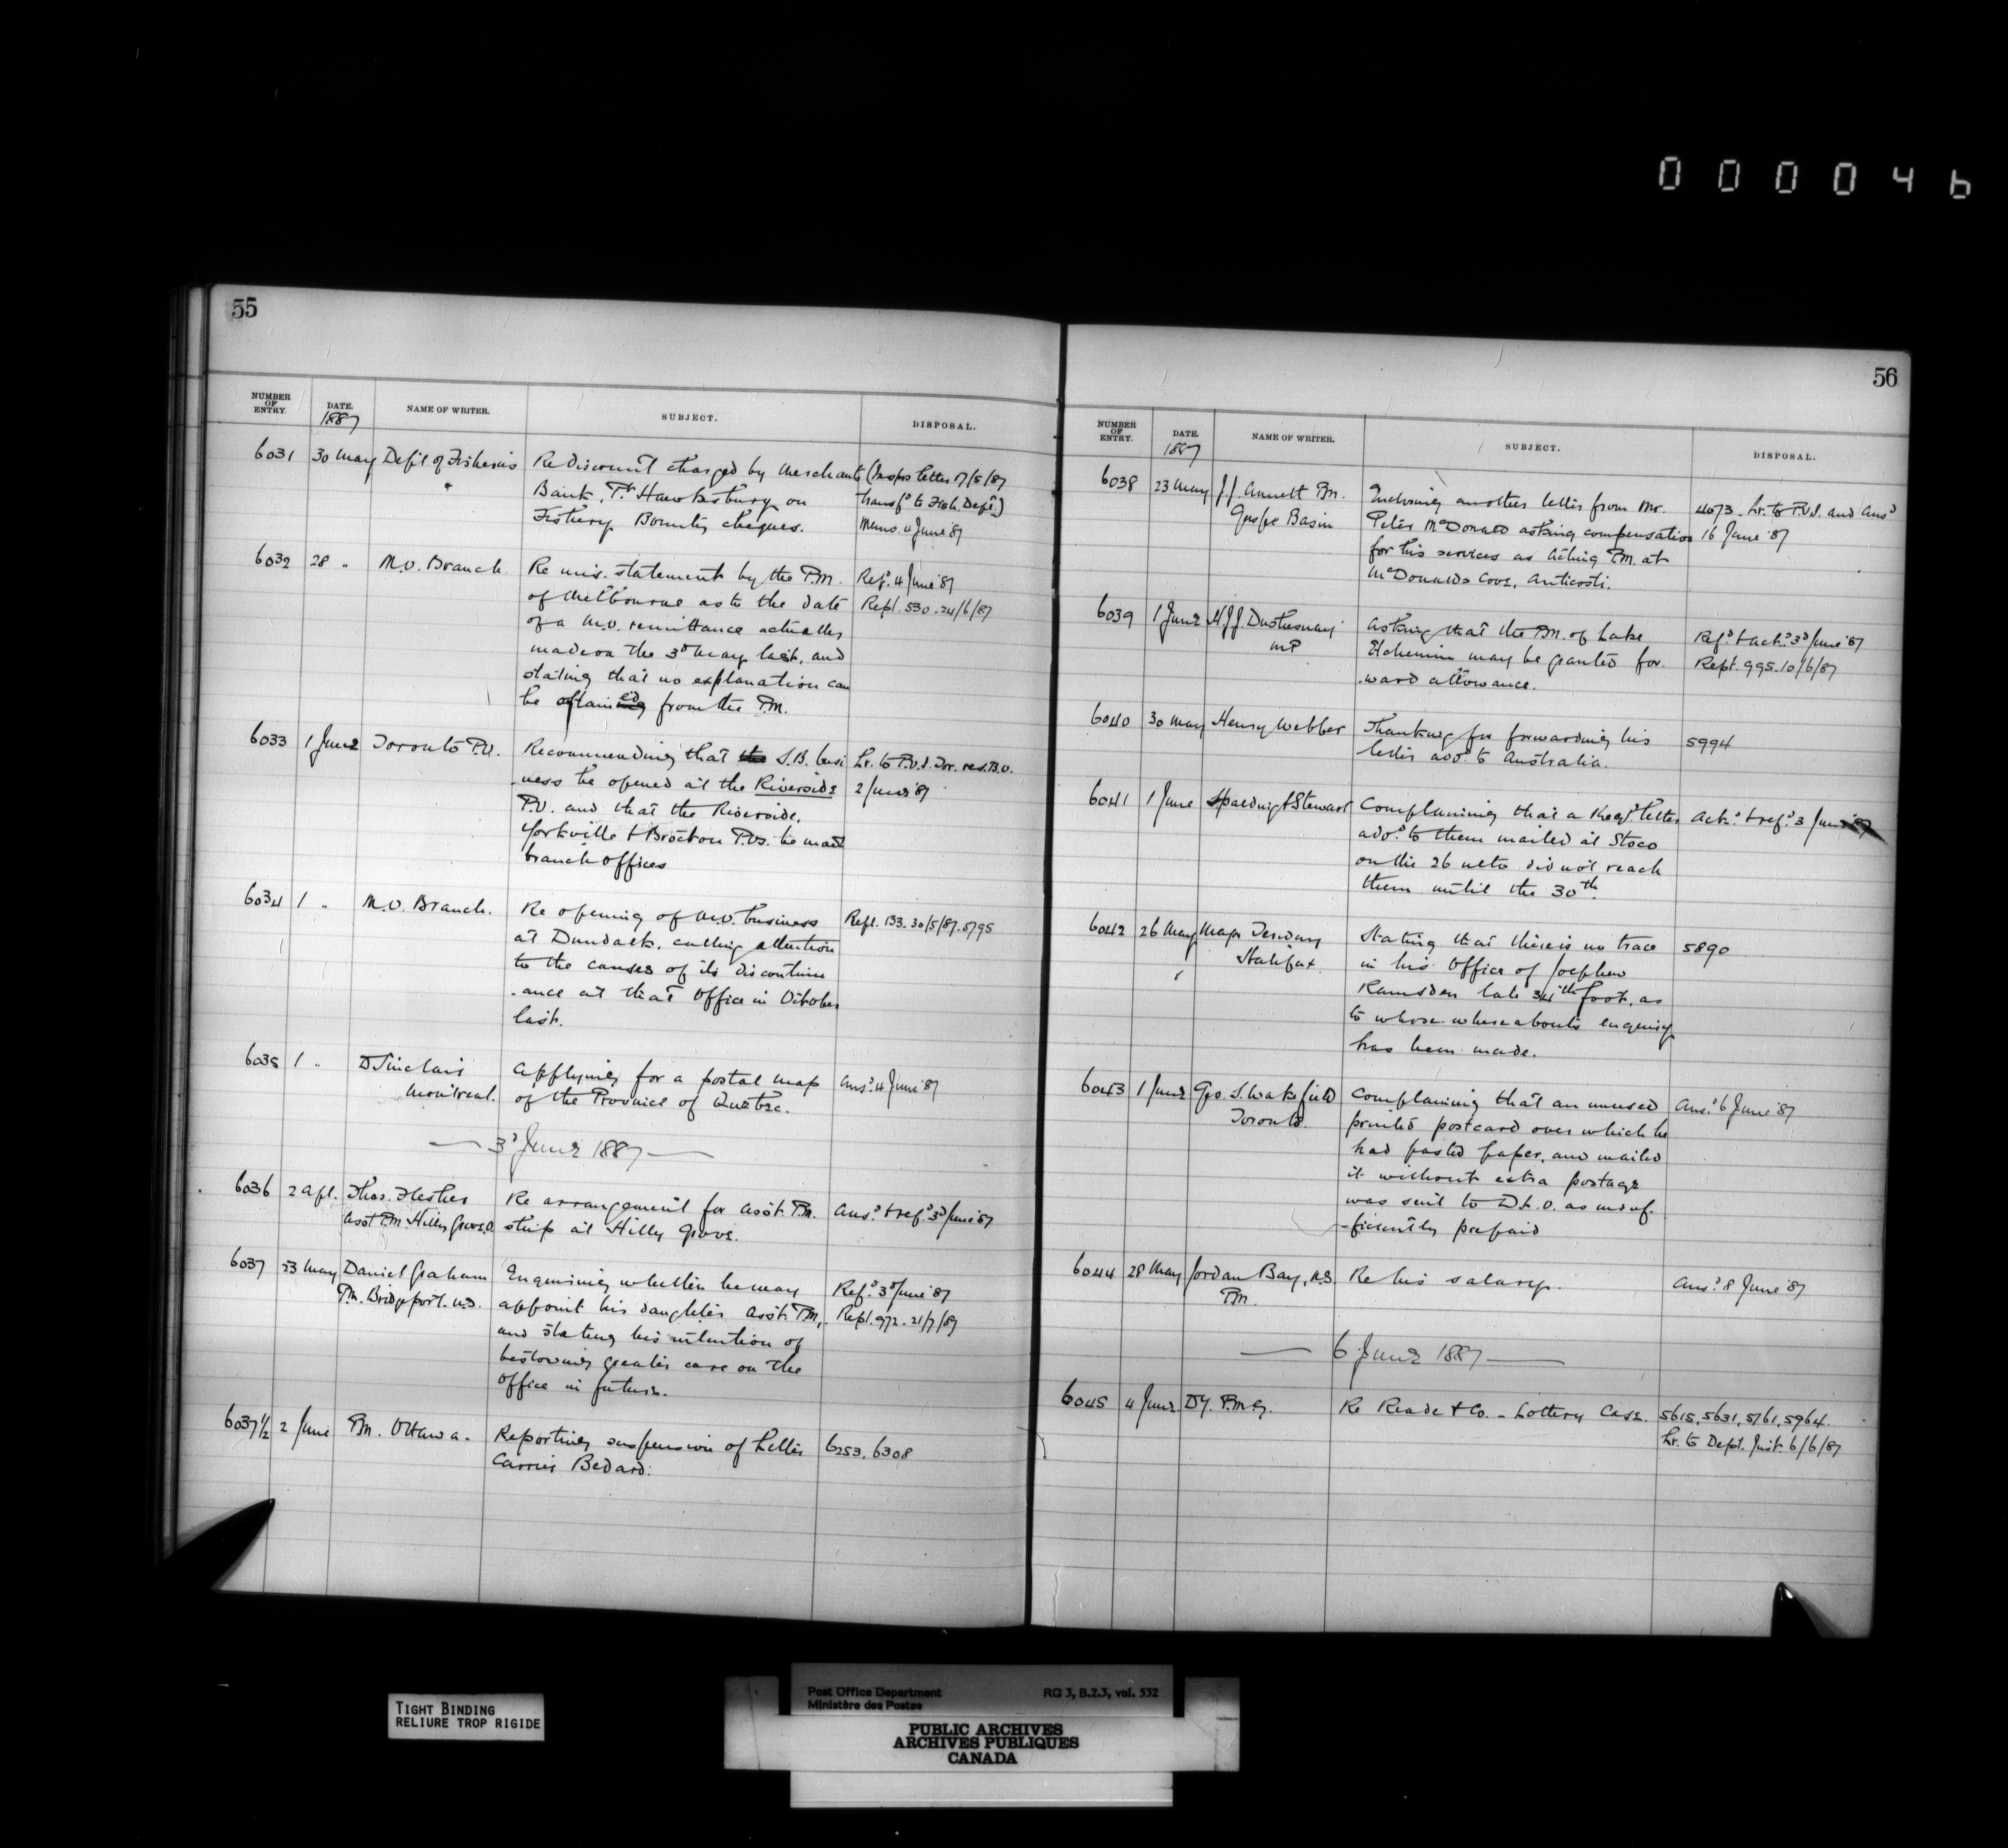 000046
55
NUMBER OF ENTRY. DATE. 1887 NAME OF WRITER. SUBJECT. DISPOSAL.
6031 30 May Dep't of Fisheries Re discount charged by Merchants (Insprs letter 17/5/87
Bank, Pt Hawkesbury on transfd to Fish. Dept.)
Fishery Bounty cheques. Memo. 4 June '87
6032 28 " M.O. Branch Re mis. statement by the P.M. Refd. 4 June '87
of Melbourne as to the date Repl. 530 - 24/6/87
of a M.O. remittance actually
made on the 3d May last, and
stating that no explanation can
be obtained from the P.M.
6033 1 June Toronto P.O. Recommending that the S.B. busi Lr. to P.O.I. Tor. res. B.O.
-ness be opened at the Riverside 2 June '87
P.O. and that the Riverside,
Yorkville & Brockton P.Os. be made
branch offices
6034 1 " M.O. Branch. Re opening of M.O. business Repl. 133. 30/5/87. 5795
at Dundalk, calling attention
to the causes of its discontinu
-ance at that office in October
last.
6035 1 " D Sinclair Applying for a postal map Ansd. 4 June '87
Montreal. of the Province of Quebec.
3d June 1887
6036 2 Apl. Thos. Flesher Re arrangement for Asst. P.M. Ansd. & refd. 3d June '87
Asst P.M. Hilly Grove O. ship at Hilly Grove.
6037 23 May Daniel Graham Enquiring whether he may Refd. 3d June '87
P.M. Bridgeport. N.S. appoint his daughter Asst. P.M., Repl. 972 - 21/7/89
and stating his intention of
bestowing greater care on the
office in future.
6037½ 2 June P.M. Ottawa. Reporting suspension of Letter 6253, 6308
Carrier Bedard.
56
NUMBER OF ENTRY. DATE. 1887 NAME OF WRITER. SUBJECT. DISPOSAL.
6038 23 May J.J. Annett P.M. Enclosing another letter from Mr. 4073 - Lr. to P.O.I. and Ansd
Gaspe Basin Peter McDonald asking compensation 16 June '87
for his services as Acting P.M. at
McDonalds Cove, Anticosti.
6039 1 June H.J.J. Duchesnay Asking that the P.M. of Lake Refd. & ackd. 3d June '87
MP Etchemin may be granted for- Rept. 995. 10/6/87
-ward allowance.
6040 30 May Henry Webber Thanking for forwarding his 5994
letter add. to Australia.
6041 1 June Spalding & Stewart Complaining that a Regd. letter Ackd. & refd. 3 June '87
add. to them mailed at Stoco
on the 26 ulto did not reach
them until the 30th.
6042 26 May Stating that there is no trace 5890
Halifax in his office of Josephew
Ramsden late 34th foot, as
to whose whereabouts enquiry
has been made.
6043 1 June Geo. S. Wakefield Complaining that an unused Ansd. 6 June '87
Toronto. printed postcard over which he
had pasted paper, and mailed
it without extra postage
was sent to D.L.O. as insuf-
-ficiently prepaid
6044 28 May Jordan Bay, N.S. Re his salary. Ansd. 8 June '87
P.M.
6 June 1887
6045 4 June Dy. P.M.G. Re Reade & Co. - Lottery Case. 5615, 5631, 5761, 5964.
Lr. to Dept. Just. 6/6/87
TIGHT BINDING
RELIURE TROP RIGIDE
Post Office Department RG 3, B.2.3, vol. 532
Ministère des Postes
PUBLIC ARCHIVES
ARCHIVES PUBLIQUES
CANADA